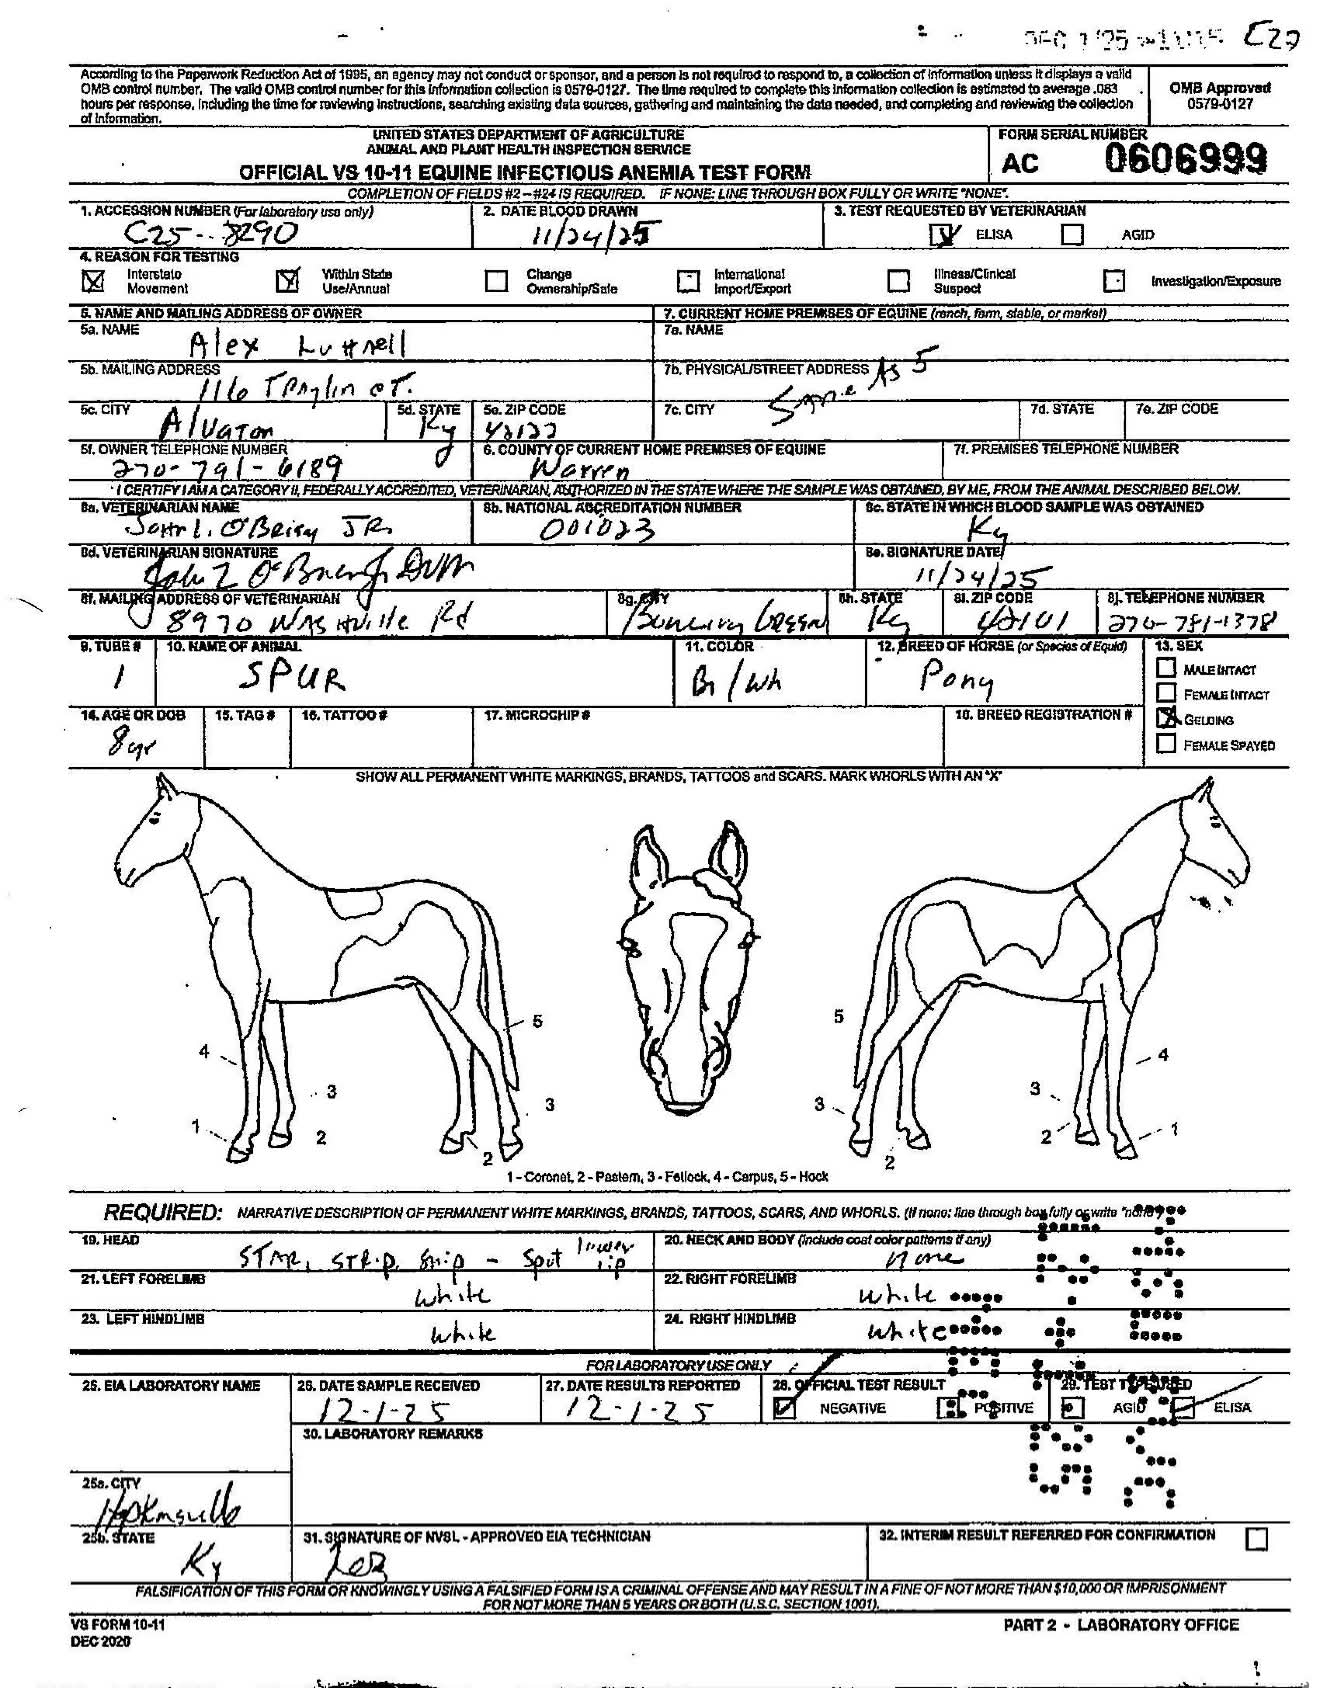 DEC 1 '25 AM11:15 E20
According to the Paperwork Reduction Act of 1995, an agency may not conduct or sponsor, and a person is not required to respond to, a collection of information unless it displays a valid
OMB control number. The valid OMB control number for this information collection is 0579-0127. The time required to complete this information collection is estimated to average .083
hours per response, including the time for reviewing instructions, searching existing data sources, gathering and maintaining the data needed, and completing and reviewing the collection
of information.
OMB Approved
0579-0127
UNITED STATES DEPARTMENT OF AGRICULTURE
ANIMAL AND PLANT HEALTH INSPECTION SERVICE
OFFICIAL VS 10-11 EQUINE INFECTIOUS ANEMIA TEST FORM
FORM SERIAL NUMBER
AC 0606999
COMPLETION OF FIELDS #2 – #24 IS REQUIRED. IF NONE: LINE THROUGH BOX FULLY OR WRITE "NONE".
1. ACCESSION NUMBER (For laboratory use only)
C25--8290
2. DATE BLOOD DRAWN
11/24/25
3. TEST REQUESTED BY VETERINARIAN
ELISA AGID
4. REASON FOR TESTING
Interstate Movement
Within State Use/Annual
Change Ownership/Sale
International Import/Export
Illness/Clinical Suspect
Investigation/Exposure
5. NAME AND MAILING ADDRESS OF OWNER
7. CURRENT HOME PREMISES OF EQUINE (ranch, farm, stable, or market)
5a. NAME
Alex Luttrell
7a. NAME
5b. MAILING ADDRESS
116 Traylin CT.
7b. PHYSICAL/STREET ADDRESS
Same As 5
5c. CITY
Alvaton
5d. STATE
Ky
5e. ZIP CODE
42122
7c. CITY
7d. STATE
7e. ZIP CODE
5f. OWNER TELEPHONE NUMBER
270-791-6189
6. COUNTY OF CURRENT HOME PREMISES OF EQUINE
Warren
7f. PREMISES TELEPHONE NUMBER
I CERTIFY I AM A CATEGORY II, FEDERALLY ACCREDITED, VETERINARIAN, AUTHORIZED IN THE STATE WHERE THE SAMPLE WAS OBTAINED, BY ME, FROM THE ANIMAL DESCRIBED BELOW.
8a. VETERINARIAN NAME
John L. O'Brien JR.
8b. NATIONAL ACCREDITATION NUMBER
001023
8c. STATE IN WHICH BLOOD SAMPLE WAS OBTAINED
Ky
8d. VETERINARIAN SIGNATURE
John L O'Brien Jr DVM
8e. SIGNATURE DATE
11/24/25
8f. MAILING ADDRESS OF VETERINARIAN
8970 Nashville Rd
8g. CITY
Bowling Green
8h. STATE
Ky
8i. ZIP CODE
42101
8j. TELEPHONE NUMBER
270-781-1378
9. TUBE #
1
10. NAME OF ANIMAL
SPUR
11. COLOR
Br/Wh
12. BREED OF HORSE (or Species of Equid)
Pony
13. SEX
MALE INTACT
FEMALE INTACT
GELDING
FEMALE SPAYED
14. AGE OR DOB
8 yr
15. TAG #
16. TATTOO #
17. MICROCHIP #
18. BREED REGISTRATION #
SHOW ALL PERMANENT WHITE MARKINGS, BRANDS, TATTOOS and SCARS. MARK WHORLS WITH AN "X"
5 5
4 4
3 3 3 3
1 2 2 2 2 1
1 - Coronet, 2 - Pastern, 3 - Fetlock, 4 - Carpus, 5 - Hock
REQUIRED: NARRATIVE DESCRIPTION OF PERMANENT WHITE MARKINGS, BRANDS, TATTOOS, SCARS, AND WHORLS. (If none: line through box fully or write "none")
19. HEAD
STAR, STRIP, Snip - Spot lower lip
20. NECK AND BODY (include coat color patterns if any)
none
21. LEFT FORELIMB
white
22. RIGHT FORELIMB
white
23. LEFT HINDLIMB
white
24. RIGHT HINDLIMB
white
FOR LABORATORY USE ONLY
25. EIA LABORATORY NAME
26. DATE SAMPLE RECEIVED
12-1-25
27. DATE RESULTS REPORTED
12-1-25
28. OFFICIAL TEST RESULT
NEGATIVE POSITIVE
29. TEST TYPE USED
AGID ELISA
30. LABORATORY REMARKS
25a. CITY
Hopkinsville
25b. STATE
Ky
31. SIGNATURE OF NVSL - APPROVED EIA TECHNICIAN
32. INTERIM RESULT REFERRED FOR CONFIRMATION
FALSIFICATION OF THIS FORM OR KNOWINGLY USING A FALSIFIED FORM IS A CRIMINAL OFFENSE AND MAY RESULT IN A FINE OF NOT MORE THAN $10,000 OR IMPRISONMENT
FOR NOT MORE THAN 5 YEARS OR BOTH (U.S.C. SECTION 1001).
VS FORM 10-11
DEC 2020
PART 2 - LABORATORY OFFICE